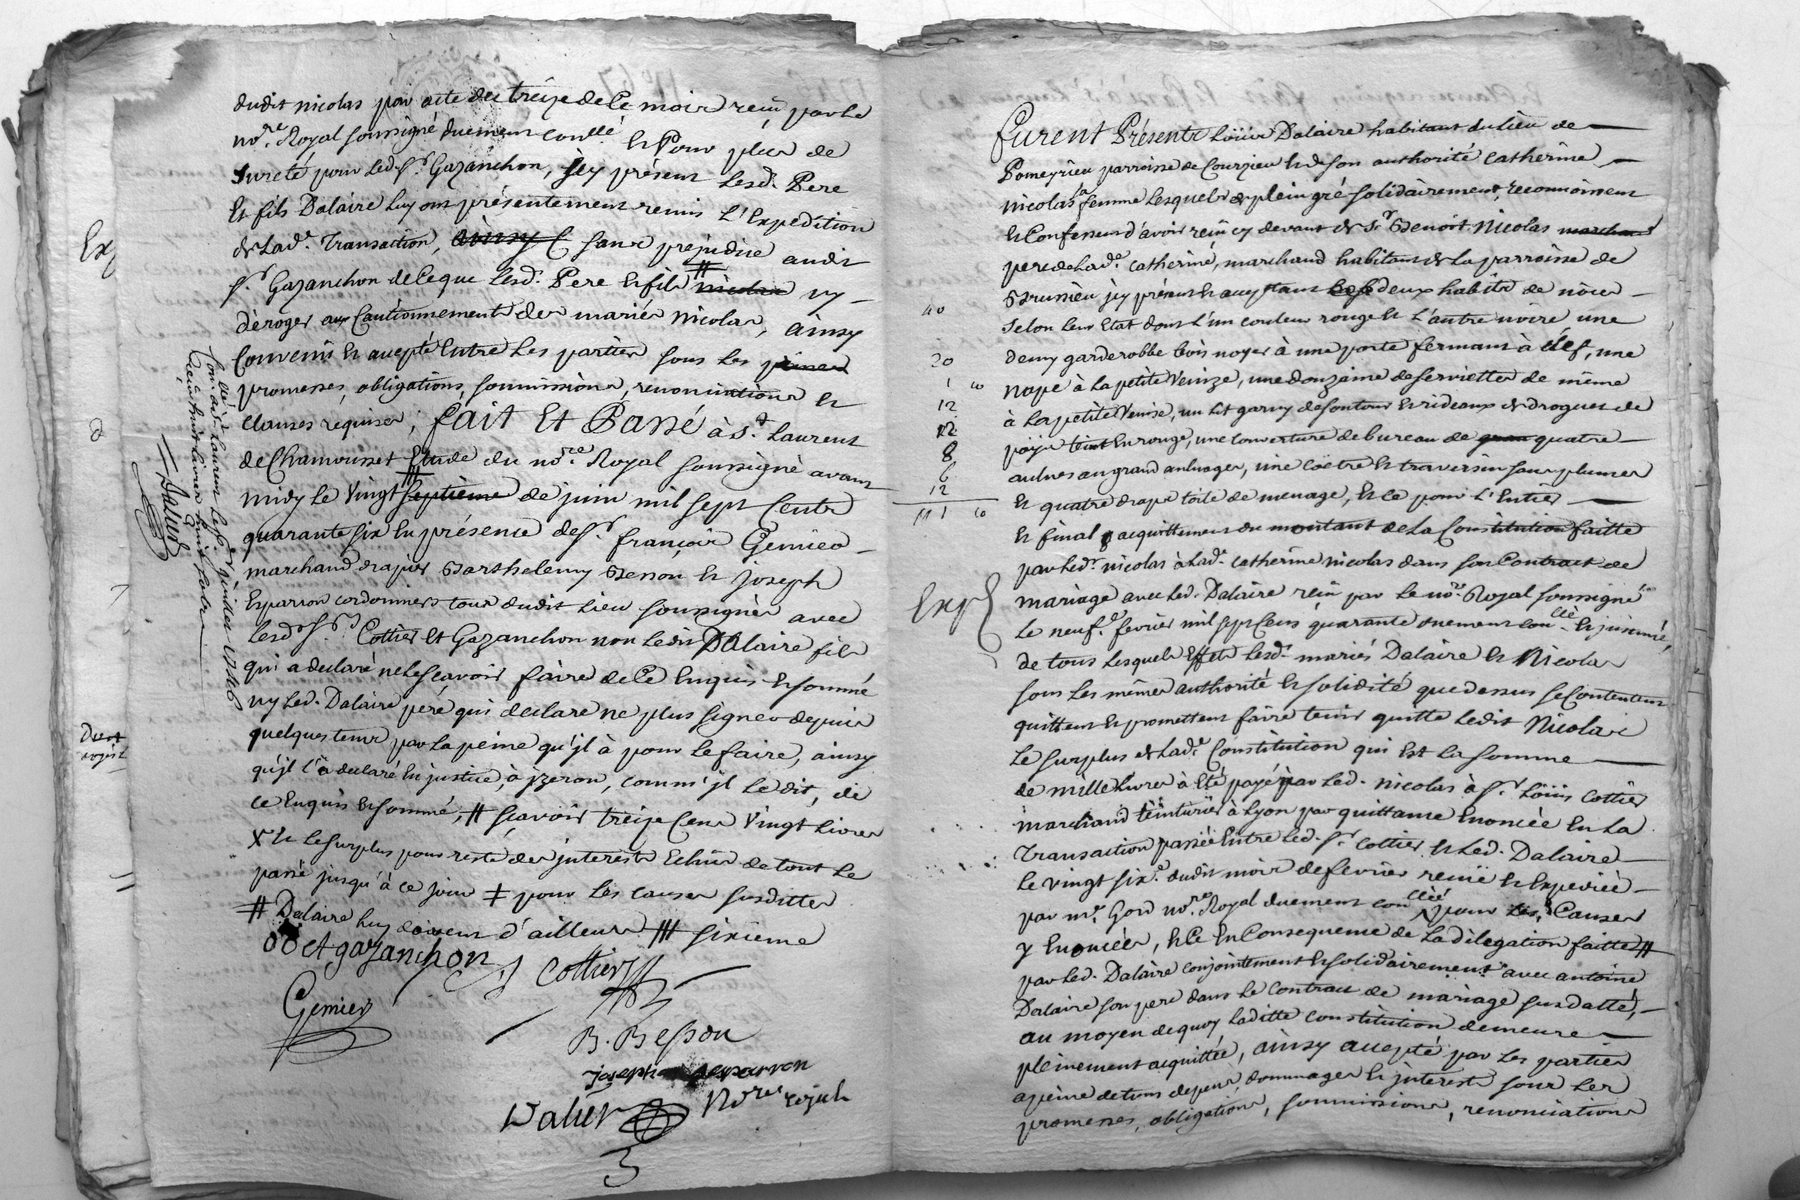 dudit nicolas par acte du treize de ce mois reçu par le
no.re Royal soussigné duement conllé. Et Pour plus de
Sureté pour led. Sr. Gazanchon, jcy présent lesd. Pere
Et fils Dalaire luy ont présentement remis L'Expedition
de Lad.e Transaction, sans prejudice audit
Sr. Gazanchon de ce que lesd. Pere et fils # nicolas ny
déroger aux Cautionnements des mariés Nicolas, ainsy
Convenu et accepté Entre les parties sous les peines
promesses, obligations, soumissions, renonciations et
Clauses requises; fait Et Passé à St. Laurent
de Chamousset Etude du no.re Royal soussigné avant
midy le Vingt Septième de juin mil sept Cents
quarante six En présence de Sr. françois Gemier
marchand drapier Barthelemy Besson et joseph
Esparron cordonniers tous dudit Lieu soussignés avec
lesd. Srs. Cottier et Gazanchon non ledit Dalaire fils
qui a declaré ne le sçavoir faire de ce Enquis et sommé
ny led. Dalaire pere qui declare ne plus signer depuis
quelques tems par la peine qu'jl à pour le faire, ainsy
qu'jl l'a declaré En justice, à jzeron, comm'jl le dit, de
ce Enquis et sommé, # sçavoir treize Cens Vingt Livres
X Et le surplus pour reste des jnterests Echus de tout le
passé jusqu'à ce jour ‡ pour les causes susdittes
# Dalaire luy doivent d'ailleurs #| sixième
gazanchon Cottier
Gemier
B. Besson
Joseph esparron
Dalier No.re royal
Exp
Conllé à St. Laurent le Sr. juillet 1746
Dalier
Furent Présents Loüis Dalaire habitant du lieu de
Pomeyrieu parroisse de Courzieu et de son authorité Catherine
Nicolas sa femme Lesquels de plein gré solidairement, reconnoissent
et Confessent d'avoir reçu cy devant de Sr. Benoit Nicolas marchand
pere de Lad.e Catherine, marchand habitant de la parroisse de
Brussieu jcy présent et acceptant deux habits de nôces
40
Selon leur Etat dont l'un couleur rouge et l'autre noire une
demy garderobbe bois noyer à une porte fermant à clef, une
20
nape à la petite Venize, une douzaine de serviettes de même
1 10
à la petite Venise, un lit garny de son tour et rideaux de drogues de
12
païs teint en rouge, une couverture de bureau de quatre
12
8
aulnes au grand aulnage, une coëtre et traversin sans plumes
6
12
Et quatre draps toile de menage, Et ce pour l'Entier
111 10
Et final acquittement du montant de la Constitution faitte
par led. nicolas à Lad.e Catherine nicolas dans son Contract de
mariage avec led. Dalaire reçu par le no.re Royal soussigné
Exp
Le neuf.e fevrier mil sept Cens quarante duement conllé et jnsinué,
de tous lesquels Effets lesd. mariés Dalaire et Nicolas
sous les mêmes authorité et solidité que dessus se Contentent
quittent et promettent faire tenir quitte ledit Nicolas
Le surplus de Lad.e Constitution qui Est la somme
de mille livres à Eté payé par led. Nicolas à Sr. Loüis Cottier
marchand teinturier à Lyon par quittance Enoncée En la
Transaction passée Entre led. Sr. Cottier et led. Dalaire
Le vingt six.e dudit mois de fevrier reçue et Expediée
par me. Gord no.re Royal duement conllée pour les Causes
y Enoncées, et ce En Consequence de la delegation faitte #
par led. Dalaire conjointement et solidairement avec antoine
Dalaire son pere dans le contract de mariage susdatté,
au moyen de quoy laditte constitution demeure
pleinement acquittée, ainsy accepté par les parties
a peine de tous depens, dommages et jnterests sous les
promesses, obligations, soumissions, renonciations